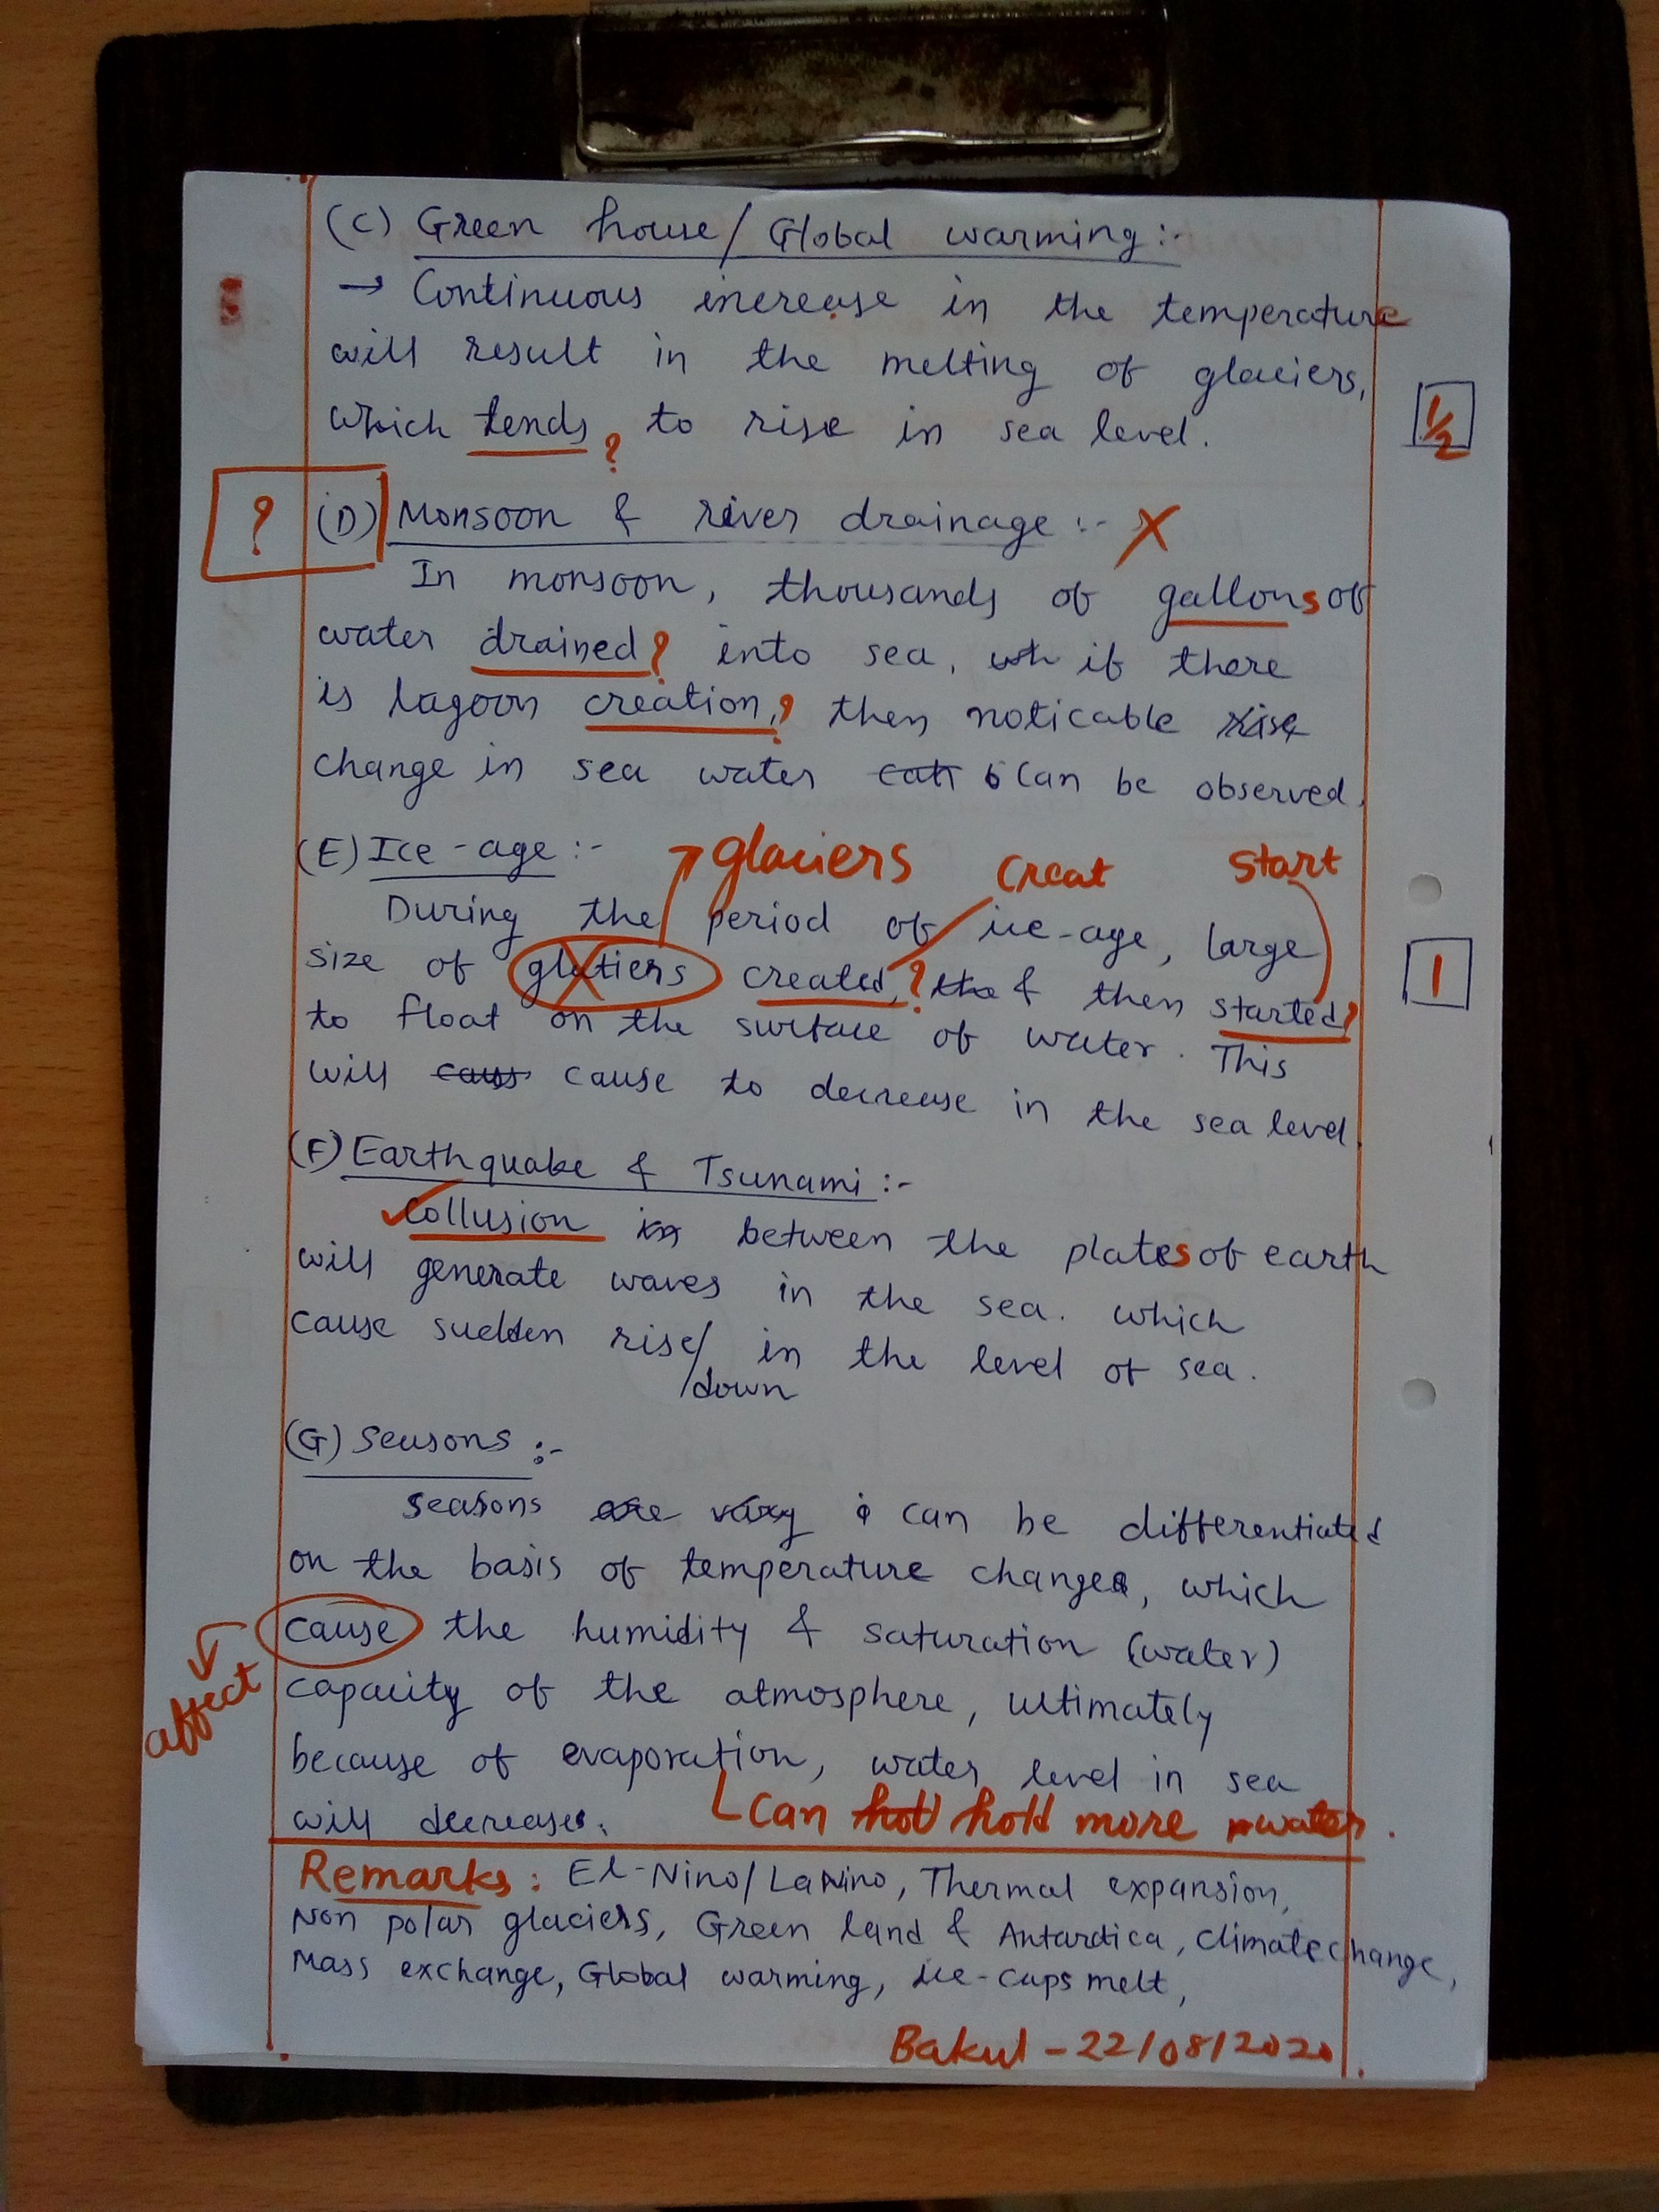 (C) Green house/ Global warming :-
→ Continuous increase in the temperature
will result in the melting of glaciers,
which tends ? to rise in sea level.
1/2
? (D) Monsoon & river drainage :- X
In monsoon, thousands of gallons of
water drained ? into sea, wh if there
is lagoon creation, ? then noticable rise
change in sea water can b can be observed.
(E) Ice-age :- glaciers Creat Start
During the period of ice-age, large
size of glatiers created, ? the & then started ?
1
to float on the surface of water. This
will caus cause to decrease in the sea level.
(F) Earthquake & Tsunami :-
Collusion in between the plates of earth
will generate waves in the sea. which
cause sudden rise/ in the level of sea.
/down
(G) Seasons :-
Seasons are vary can be differentiated
on the basis of temperature change, which
cause the humidity & saturation (water)
affect
capacity of the atmosphere, ultimately
because of evaporation, water level in sea
will decrease. Can hot hold more water.
Remarks : El-Nino/LaNino, Thermal expansion,
Non polar glaciers, Green land & Antardica, Climate change,
Mass exchange, Global warming, ice-caps melt,
Bakul - 22/08/2020